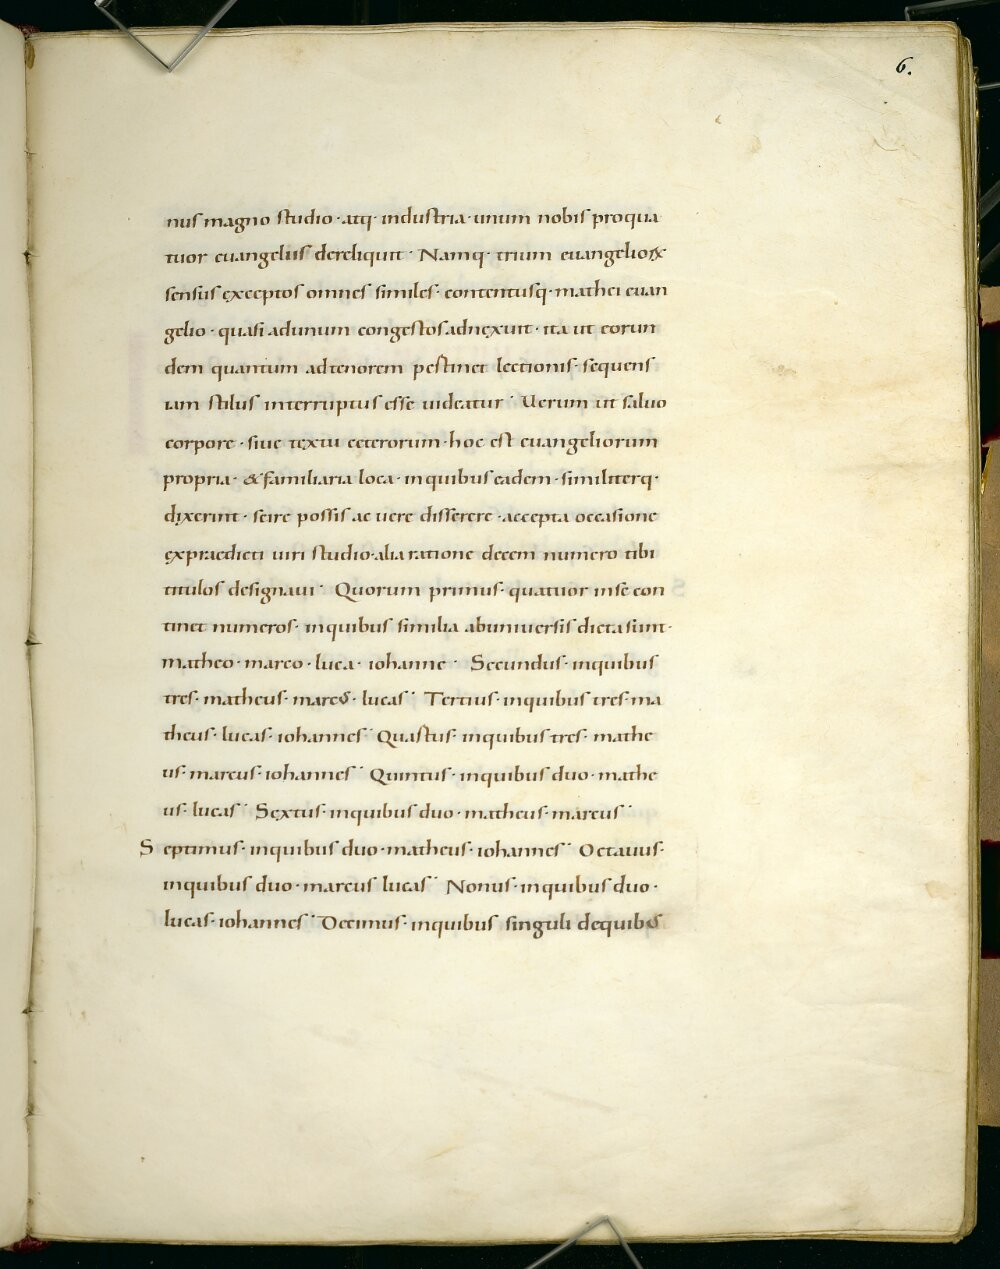 6.
nus magno studio · atq· industria · unum nobis pro qua
tuor euangeliis dereliquit · Namq· trium euangelioꝝ
sensus exceptos omnes similes · contentusq· mathei euan
gelio · quasi ad unum congestos adnexuit · ita ut eorun
dem quantum ad tenorem pestinet lectionis · sequens
iam stilus interruptus esse uideatur · Uerum ut saluo
corpore · siue textu ceterorum · hoc est euangeliorum
propria · & familiaria loca · in quibus eadem · similiterq·
dixerint · scire possis ac uere disserere · accepta occasione
ex praedicti uiri studio · alia ratione decem numero tibi
titulos designaui · Quorum primus · quatuor in se con
tinet numeros · in quibus similia ab uniuersis dicta sunt ·
matheo · marco · luca · iohanne · Secundus · in quibus
tres · matheus · marcus · lucas · Tertius · in quibus tres · ma
theus · lucas · iohannes · Quastus · in quibus tres · mathe
us · marcus · iohannes · Quintus · in quibus duo · mathe
us · lucas · Sextus · in quibus duo · matheus · marcus ·
Septimus · in quibus duo · matheus · iohannes · Octauus ·
in quibus duo · marcus lucas · Nonus · in quibus duo ·
lucas · iohannes · Decimus · in quibus singuli de quibus